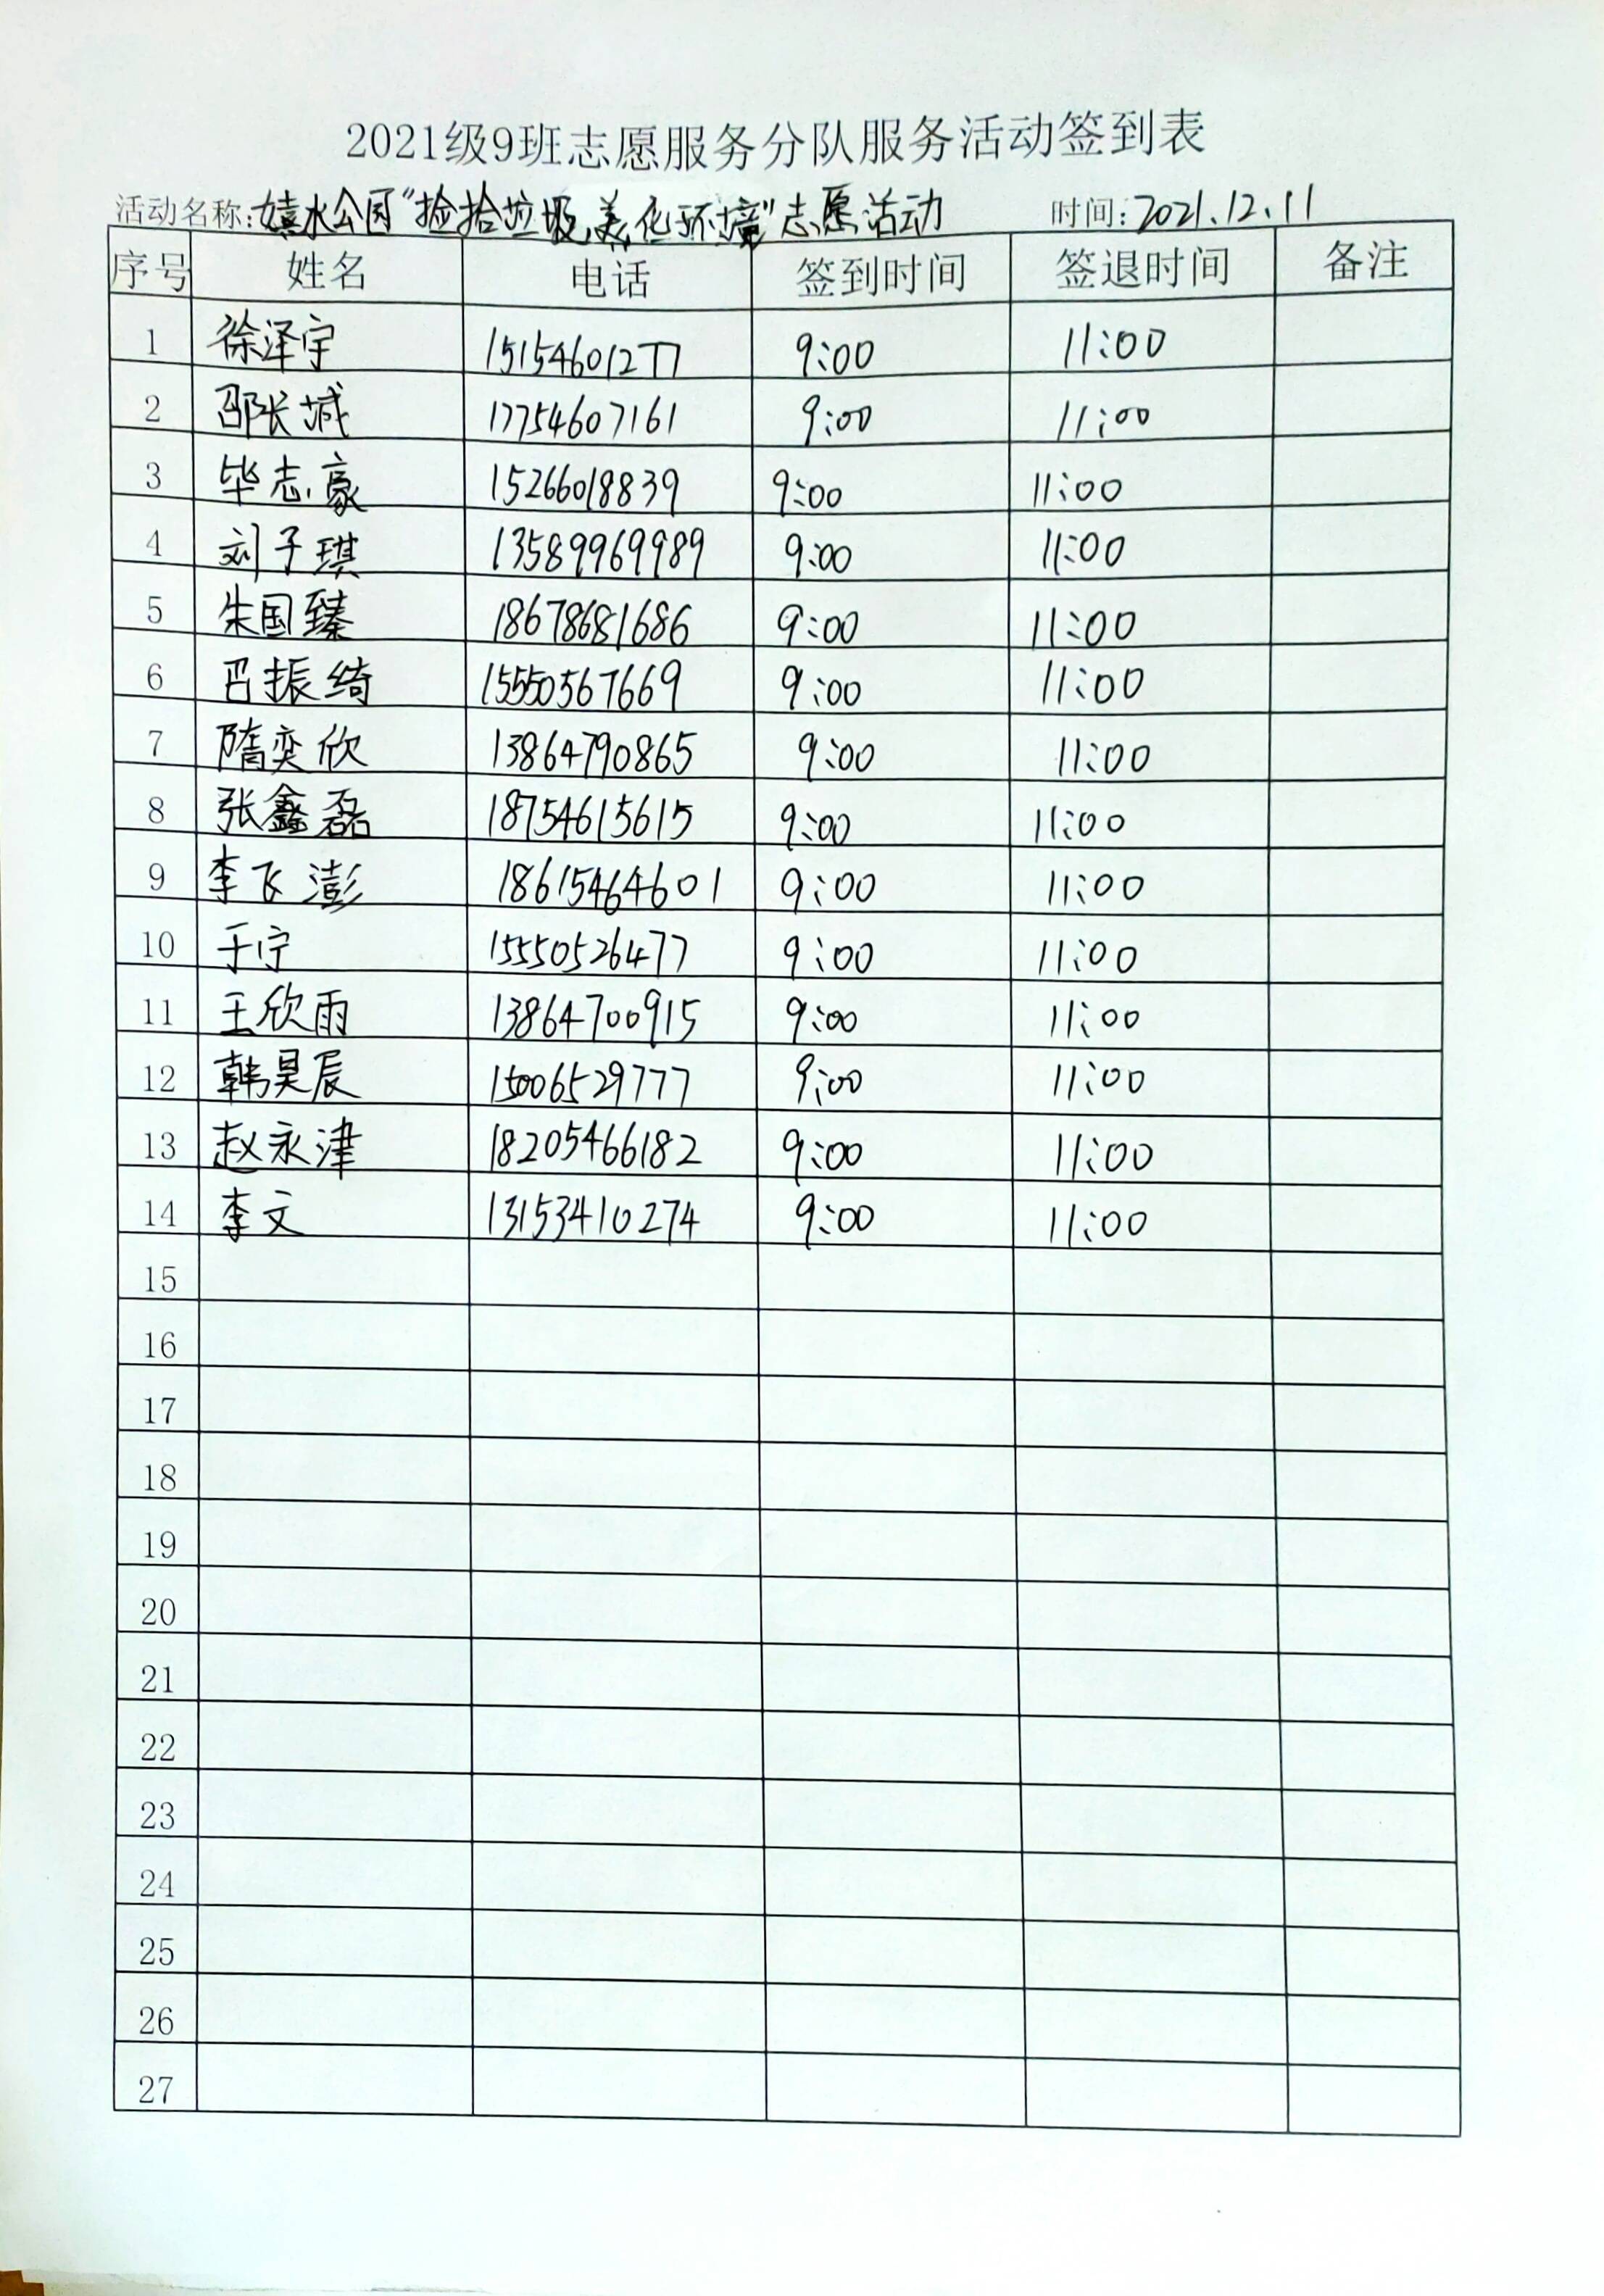 2021级9班志愿服务分队服务活动签到表
活动名称:嬉水公园“捡拾垃圾,美化环境”志愿活动 时间:2021.12.11
序号 姓名 电话 签到时间 签退时间 备注
1 徐泽宇 15154601277 9:00 11:00
2 邵长城 17754607161 9:00 11:00
3 毕志豪 15266018839 9:00 11:00
4 刘子琪 13589969989 9:00 11:00
5 朱国臻 18678681686 9:00 11:00
6 吕振绮 15550567669 9:00 11:00
7 隋奕欣 13864790865 9:00 11:00
8 张鑫磊 18754615615 9:00 11:00
9 李飞澎 18615464601 9:00 11:00
10 于宁 15550526477 9:00 11:00
11 王欣雨 13864700915 9:00 11:00
12 韩昊辰 15006529777 9:00 11:00
13 赵永津 18205466182 9:00 11:00
14 李文 13153410274 9:00 11:00
15
16
17
18
19
20
21
22
23
24
25
26
27